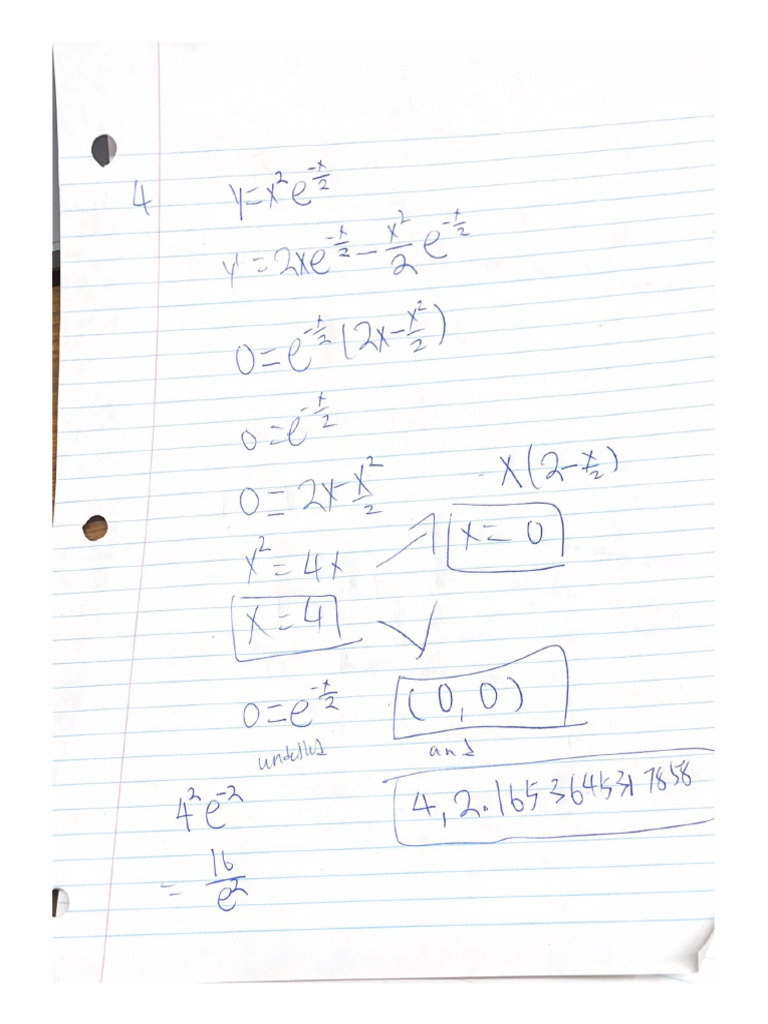 4 y=x²e^(-x/2)
y' = 2xe^(-x/2) - x²/2 e^(-x/2)
0=e^(-x/2) (2x-x²/2)
0=e^(-x/2)
0= 2x-x²/2 x(2-x/2)
x²=4x x=0
x=4
0=e^(-x/2) (0,0)
and
4²e^(-2) 4, 2.1653645317858
= 16/e²